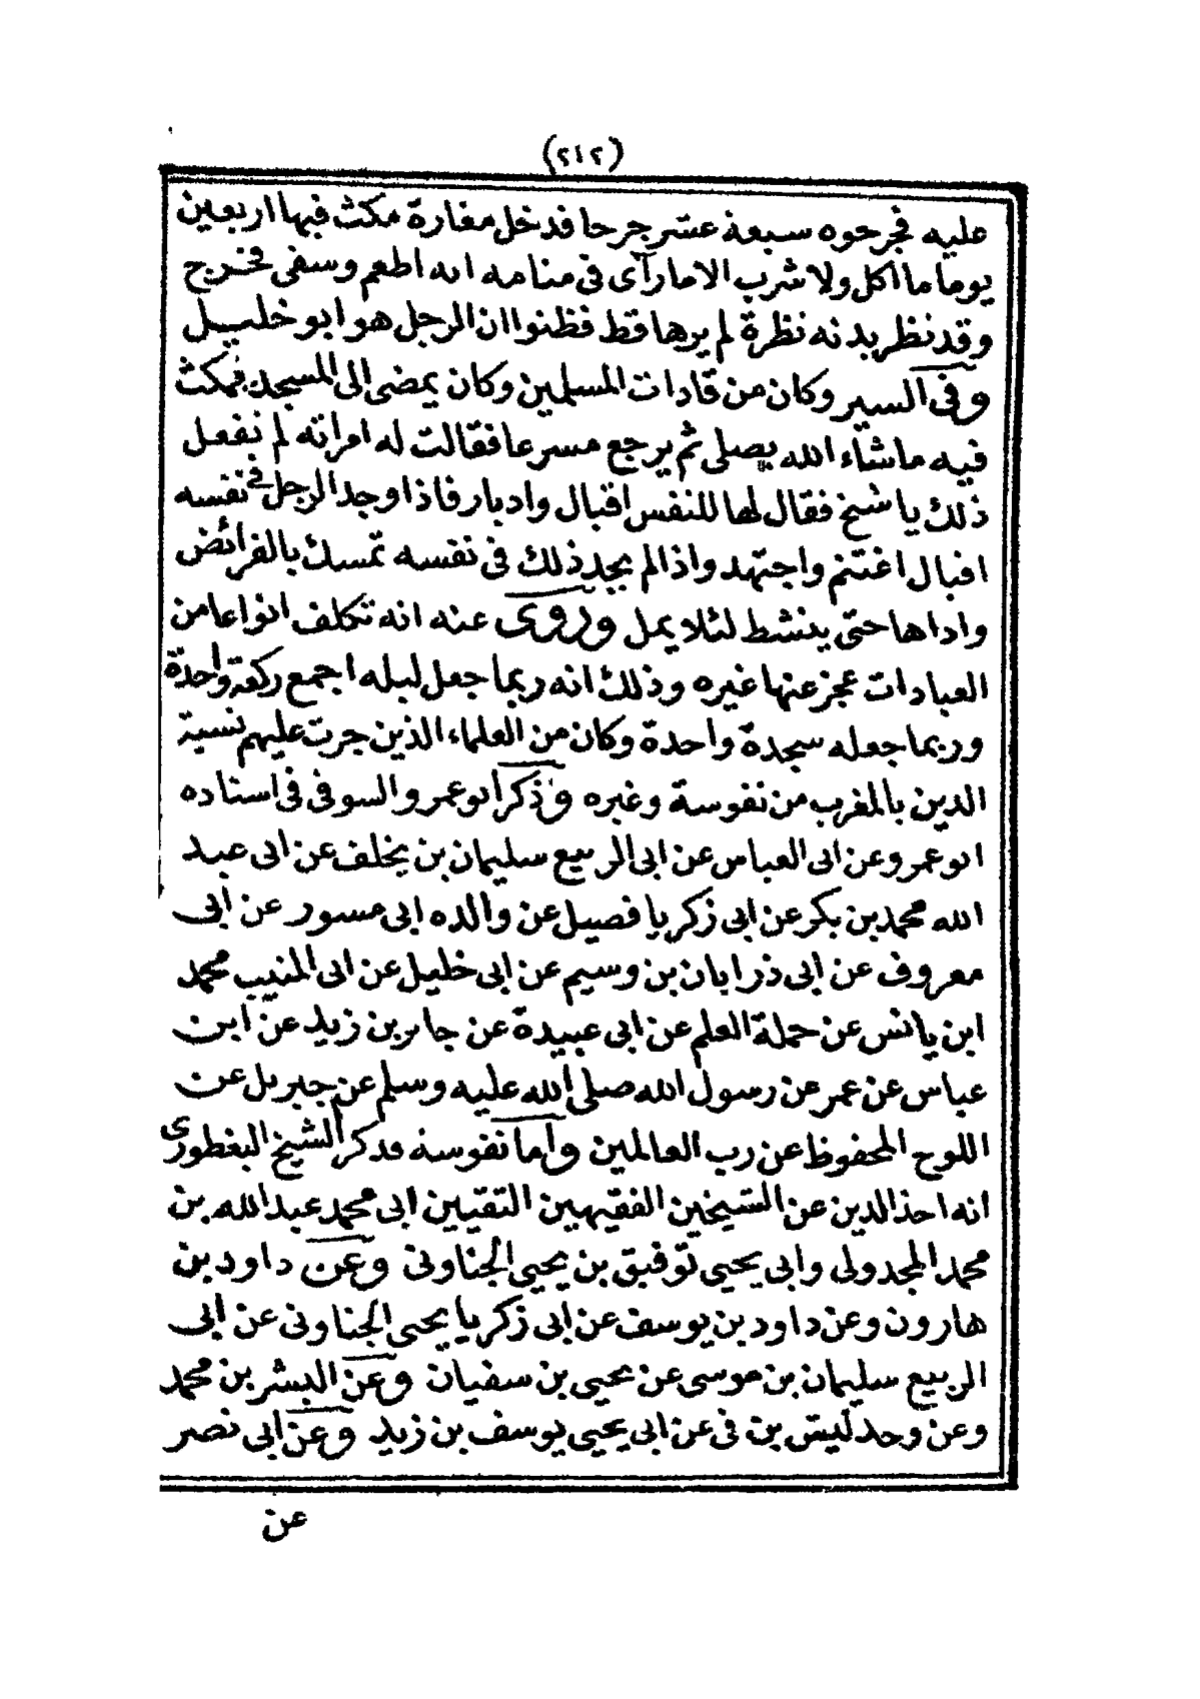 (٢١٢)
عليه فجرحوه سبعة عشر جرحا فدخل مغارة مكث فيها اربعين
يوما ما اكل ولا شرب الا ما رآى فى منامه انه اطعم وسقى فخرج
وقد نظر بدنه نظرة لم يرها قط فظنوا ان الرجل هو ابو خليل
وفى السير وكان من قادات المسلمين وكان يمضى الى المسجد فمكث
فيه ماشاء الله يصلى ثم يرجع مسرعا فقالت له امراته لم تفعل
ذلك يا شيخ فقال لها للنفس اقبال وادبار فاذا وجد الرجل فى نفسه
اقبال اغتنم واجتهد واذا لم يجد ذلك فى نفسه تمسك بالفرائض
واداها حتى ينشط لئلا يمل وروى عنه انه تكلف انواعا من
العبادات عجز عنها غيره وذلك انه ربما جعل ليله اجمع ركعة واحدة
وربما جعله سجدة واحدة وكان من العلماء الذين جرت عليهم نسبة
الدين بالمغرب من نفوسة وغيره وذكر ابو عمرو السوفى فى اسناده
ابو عمرو عن ابى العباس عن ابى الربيع سليمان بن يخلف عن ابى عبد
الله محمد بن بكر عن ابى زكريا فصيل عن والده ابى مسور عن ابى
معروف عن ابى ذر ابان بن وسيم عن ابى خليل عن ابى المنيب محمد
ابن يانس عن حملة العلم عن ابى عبيدة عن جابر بن زيد عن ابن
عباس عن عمر عن رسول الله صلى الله عليه وسلم عن جبريل عن
اللوح المحفوظ عن رب العالمين واما نفوسة فذكر الشيخ البغطورى
انه اخذ الدين عن الشيخين الفقيهين التقيين ابى محمد عبد الله بن
محمد المجدولى وابى يحيى توفيق بن يحيى الجناونى وعن داود بن
هارون وعن داود بن يوسف عن ابى زكريا يحيى الجناونى عن ابى
الربيع سليمان بن موسى عن يحيى بن سفيان وعن البشر بن محمد
وعن وحد ليش بن فى عن ابى يحيى يوسف بن زيد وعن ابى نصر
عن